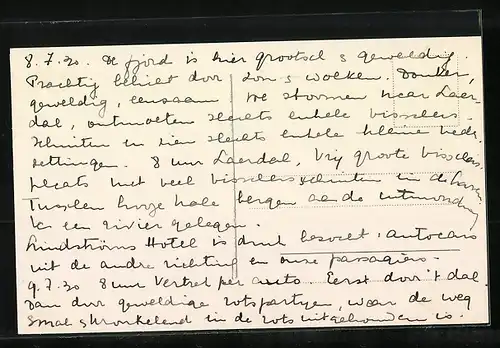 8.7.30. De fjord is hier grootsch & geweldig.
Prachtig belicht door zon & wolken. Donker,
geweldig, eenzaam. We stoomen naar Laer-
dal, ontmoeten slechts enkele visschers-
schuiten en zien slechts enkele kleine neder-
zettingen. 8 uur Laerdal, vrij groote visschers
plaats met veel visschersschuiten in de haven
Tusschen hooge kale bergen aan de uitmonding
van een rivier gelegen.
Lindströms Hotel is druk bezocht: autocars
uit de andre richting en onze passagiers.
9.7.30 8 uur Vertrek per auto. Eerst door 't dal
dan door geweldige rotspartijen, waar de weg
smal & kronkelend in de rots uitgehouwen is.